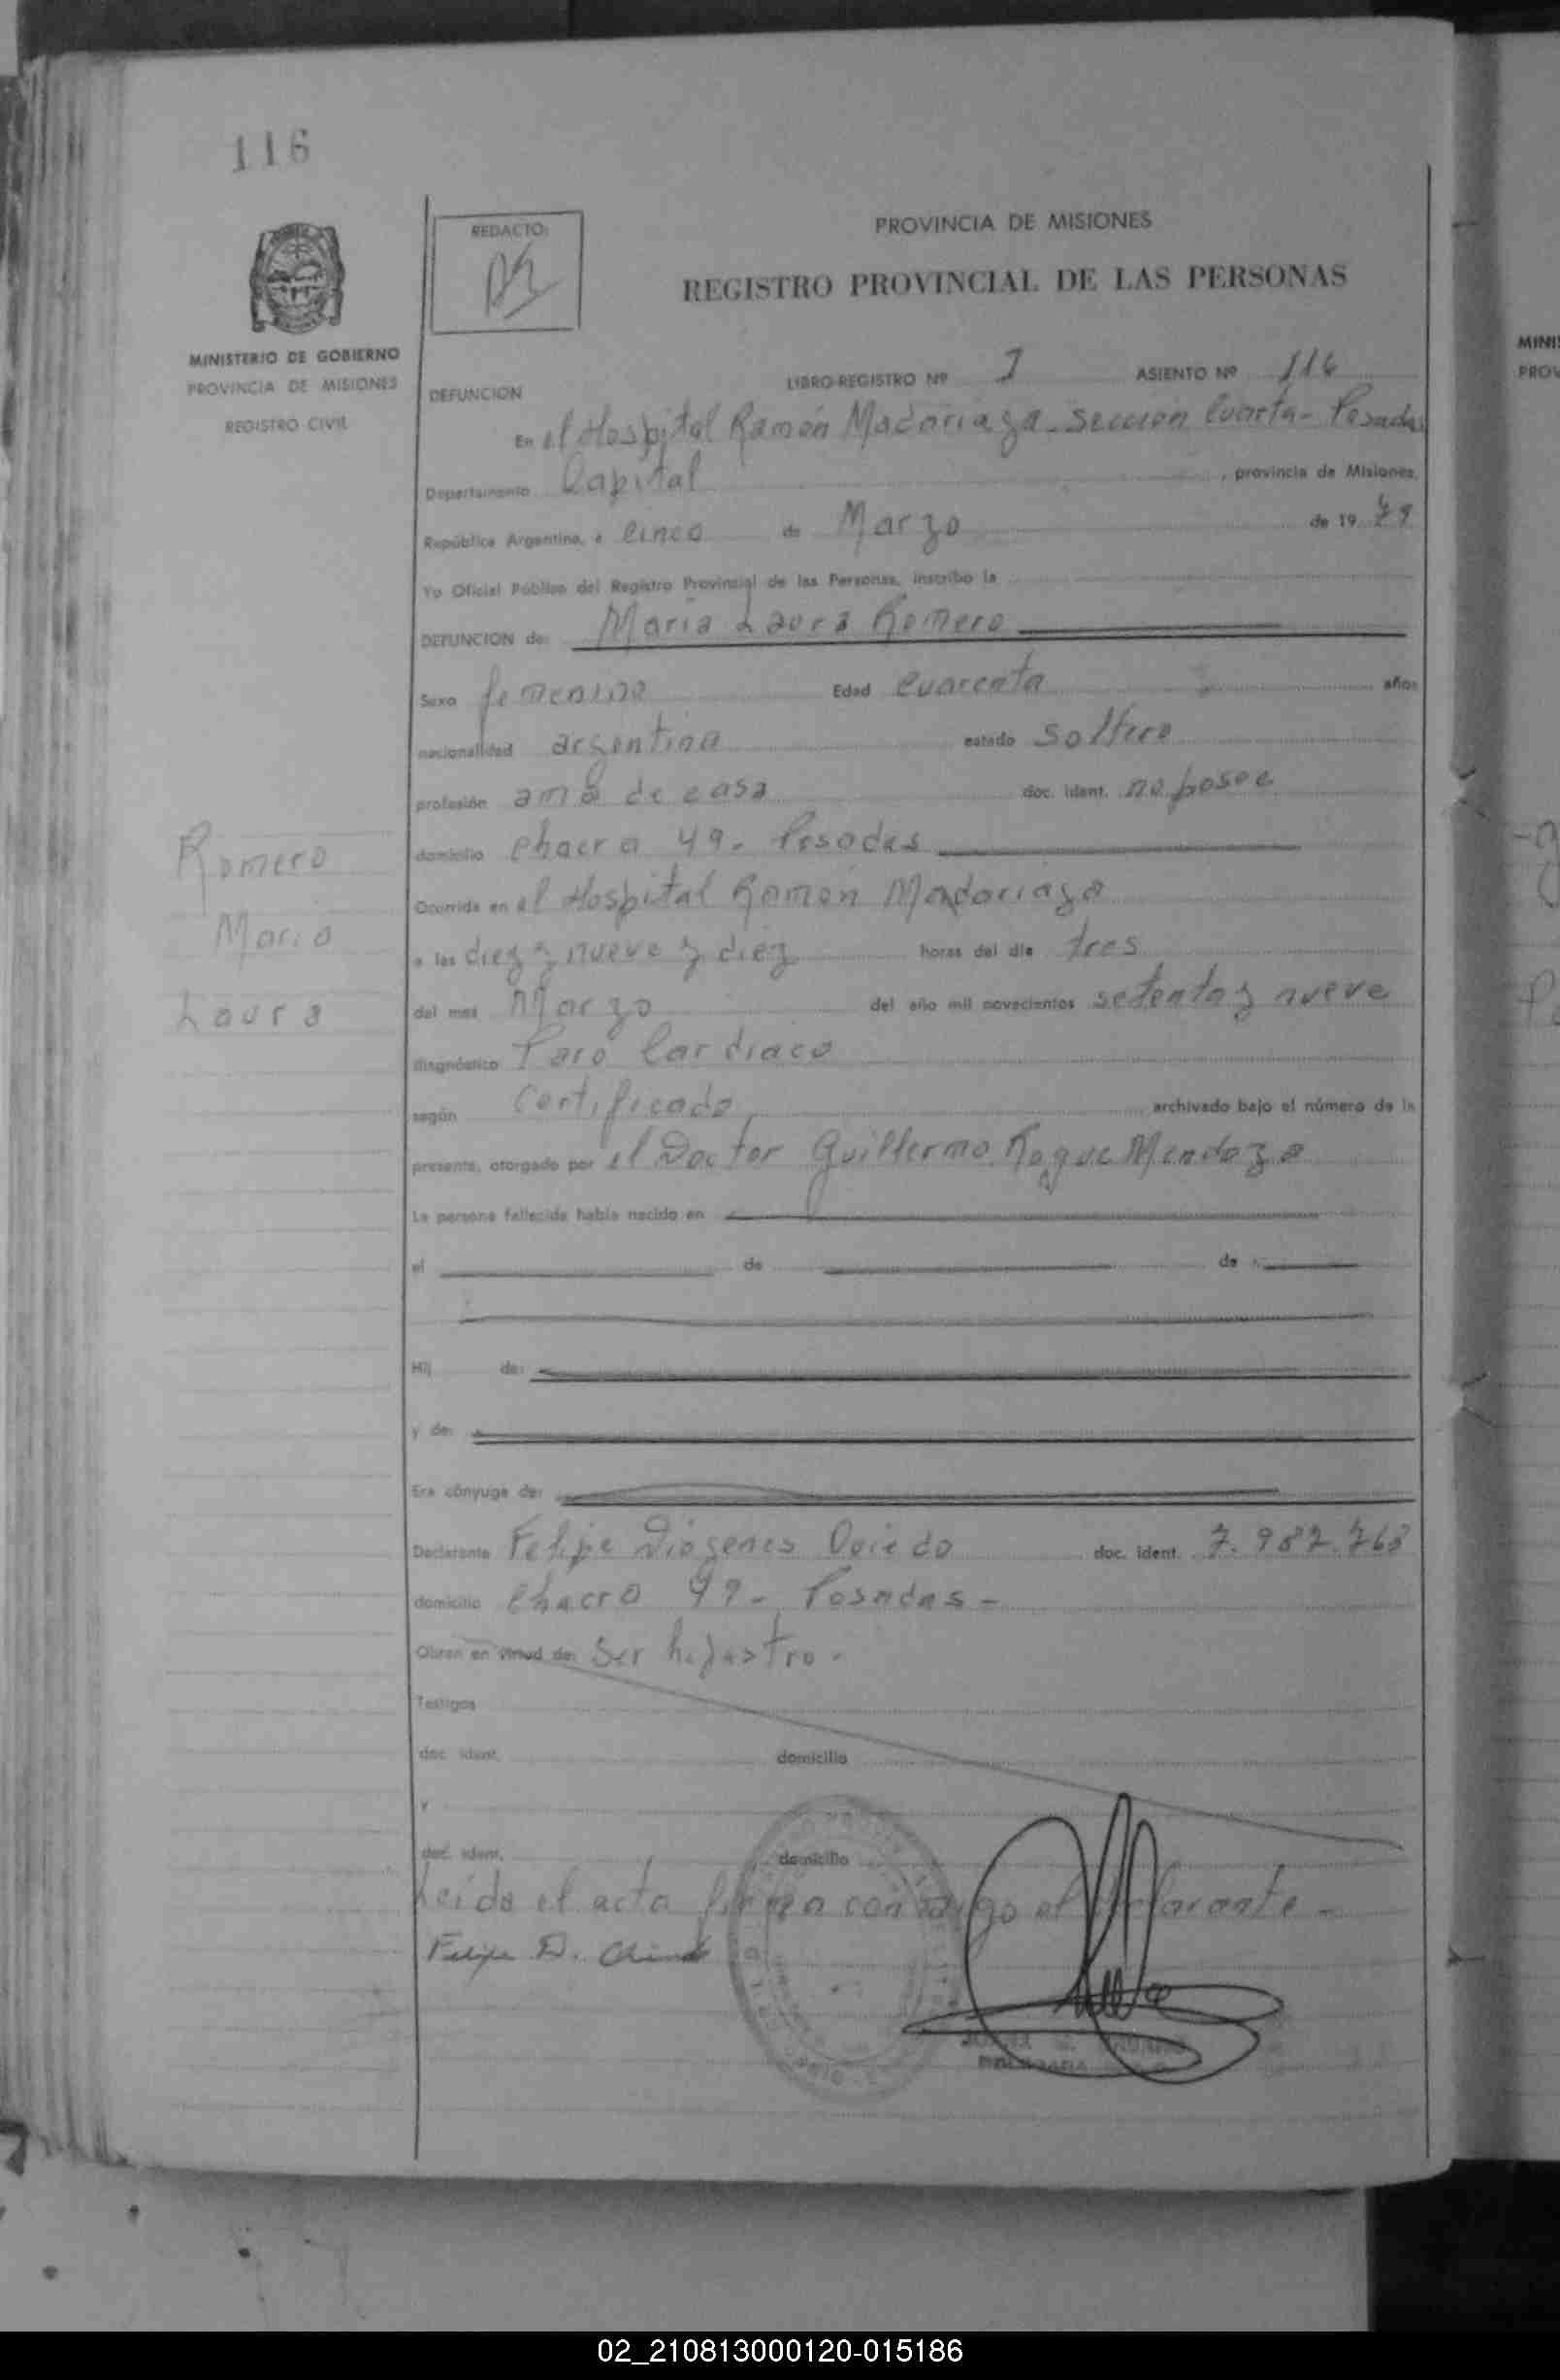 116
REDACTO:
PROVINCIA DE MISIONES
REGISTRO PROVINCIAL DE LAS PERSONAS
MINISTERIO DE GOBIERNO
PROVINCIA DE MISIONES
REGISTRO CIVIL
DEFUNCION LIBRO-REGISTRO Nº I ASIENTO Nº 116
En el Hospital Ramón Madariaga - Sección Cuarta - Posadas
Departamento Capital, provincia de Misiones,
República Argentina, a cinco de Marzo de 19 79
Yo Oficial Público del Registro Provincial de las Personas, inscribo la
DEFUNCION de: Maria Laura Romero
Sexo femenino Edad cuarenta años
nacionalidad argentina estado soltera
profesión ama de casa doc. ident. no posee
domicilio Chacra 49. Posadas
Ocurrida en el Hospital Ramón Madariaga
a las diez y nueve y diez horas del día tres
del mes Marzo del año mil novecientos setenta y nueve
diagnóstico Paro Cardiaco
según Certificado archivado bajo el número de la
presente, otorgado por el Doctor Guillermo Roque Mendoza
La persona fallecida había nacido en
el de de
Hij de:
y de:
Era cónyuge de:
Declarante Felipe Diógenes Oviedo doc. ident. 7.987.768
domicilio Chacra 49 - Posadas -
Obran en virtud de: Ser hijastro.
Testigos
doc. ident. domicilio
y
doc. ident. domicilio
Leída el acta firma conmigo el declarante -
Felipe D.
Romero
Maria
Laura
MINIS
PROV
02_210813000120-015186